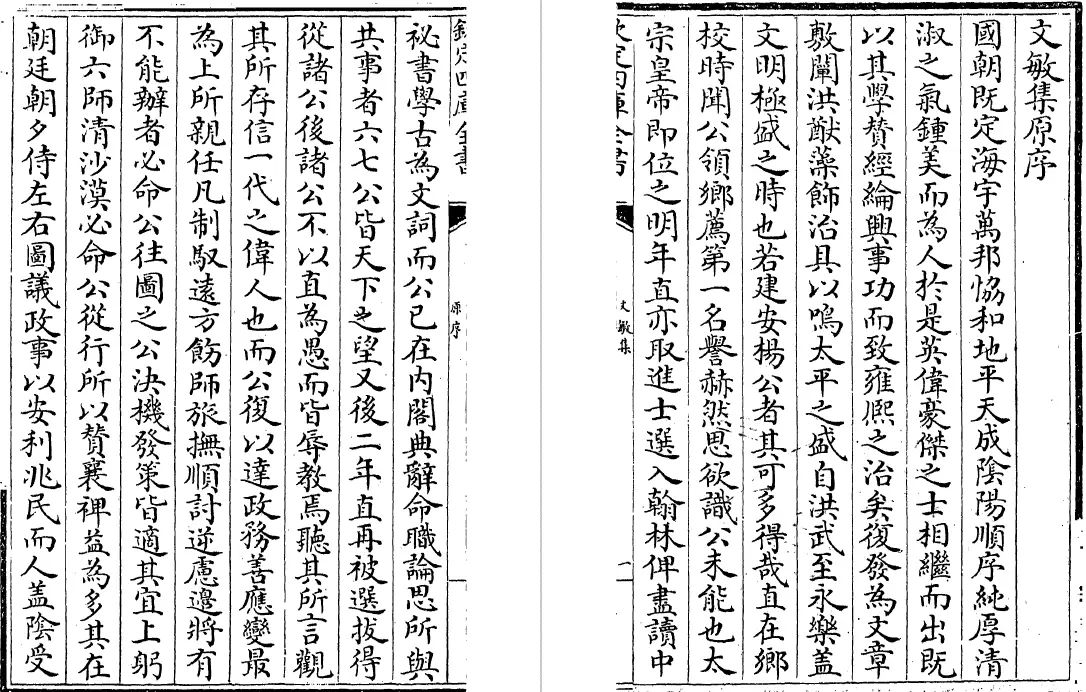 文敏集原序
國朝既定海宇萬邦恊和地平天成隂陽順序純厚清
淑之氣鍾美而為人於是英偉豪傑之士相繼而出既
以其學賛經綸興事功而致雍熈之治矣復發為文章
敷闡洪猷藻飾治具以鳴太平之盛自洪武至永樂盖
文明極盛之時也若建安楊公者其可多得哉直在鄉
校時聞公領鄉薦第一名譽赫然思欲識公未能也太
宗皇帝即位之明年直亦取進士選入翰林俾盡讀中
欽定四庫全書
文敏集
欽定四庫全書
原序
祕書學古為文詞而公已在内閣典辭命職論思所與
共事者六七公皆天下之望又後二年直再被選拔得
從諸公後諸公不以直為愚而皆辱教焉聽其所言觀
其所存信一代之偉人也而公復以達政務善應變最
為上所親任凡制馭逺方飭師旅撫順討逆慮邉將有
不能辦者必命公往圖之公決機發策皆適其宜上躬
御六師清沙漠必命公從行所以賛襄裨益為多其在
朝廷朝夕侍左右圖議政事以安利兆民而人盖隂受